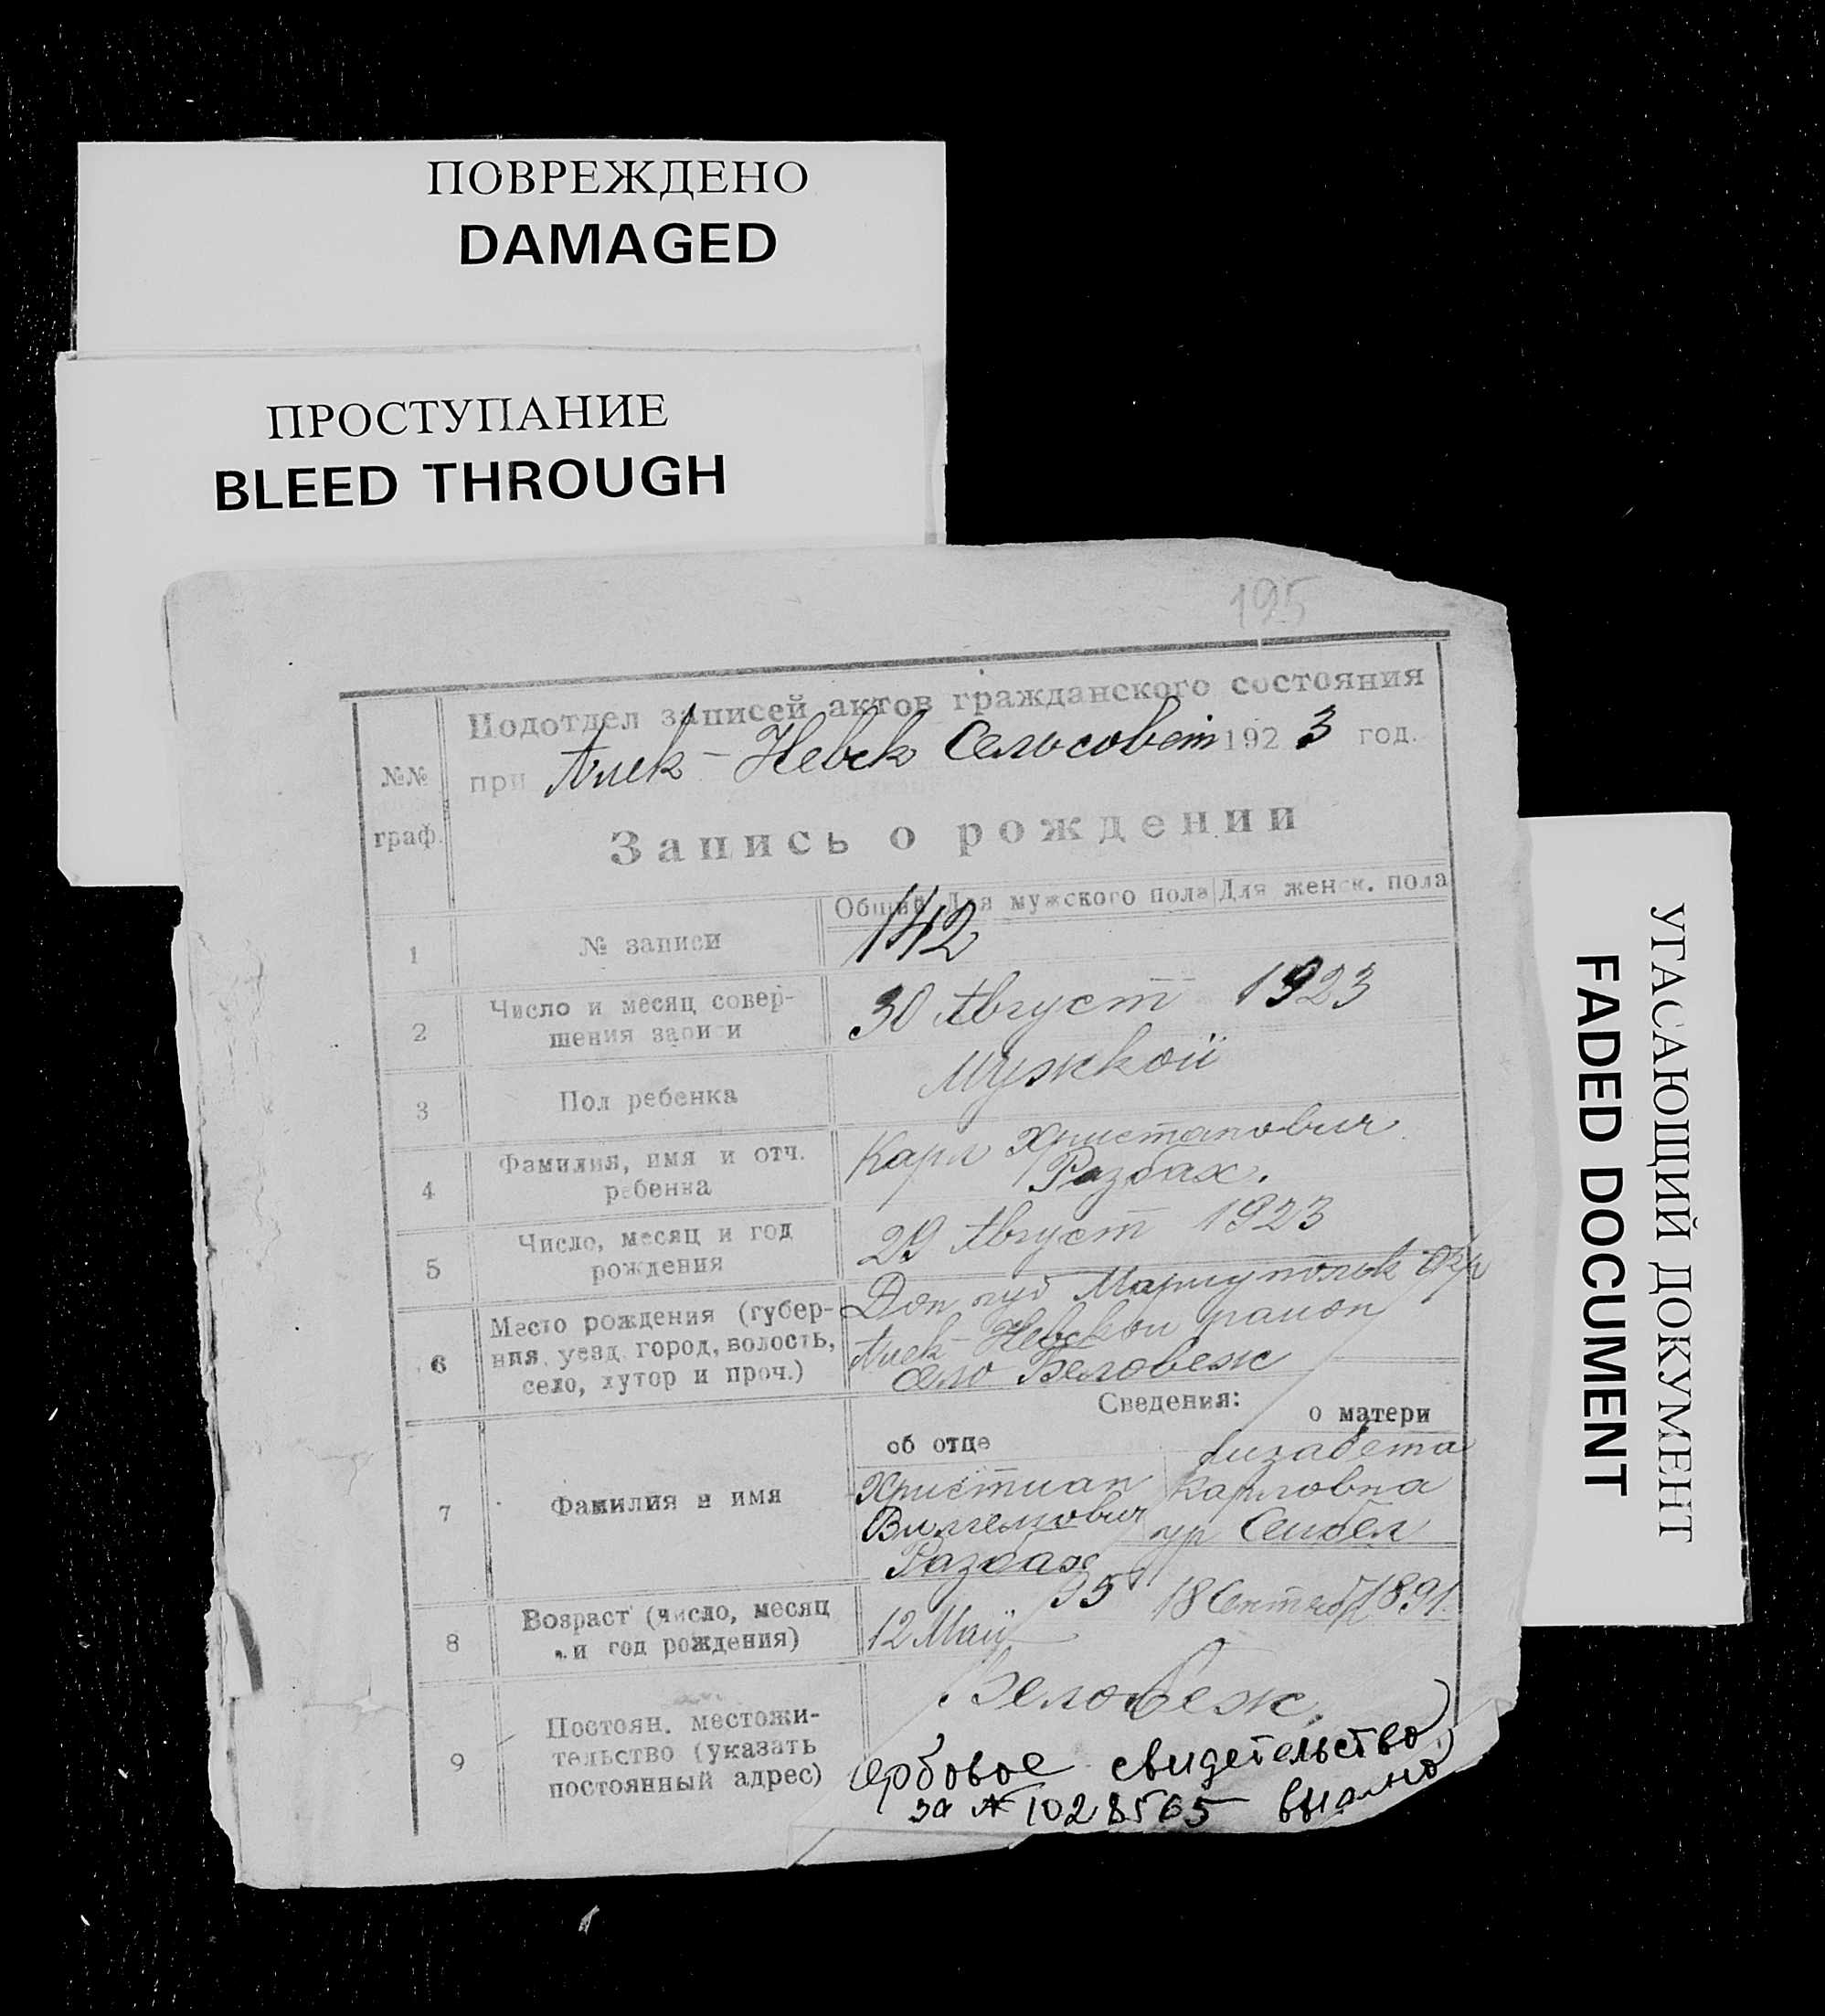 ПОВРЕЖДЕНО
DAMAGED
ПРОСТУПАНИЕ
BLEED THROUGH
УГАСАЮЩИЙ ДОКУМЕНТ
FADED DOCUMENT
195
Подотдел записей актов гражданского состояния
при Алек-Невск Сельсовет 1923 год.
№№ граф.
Запись о рождении
Общий Для мужского пола Для женск. пола
1 № записи 142
2 Число и месяц совер-
шения записи 30 Август 1923
3 Пол ребенка Мужской
4 Фамилия, имя и отч.
ребенка Карл Христанович
Разбах.
5 Число, месяц и год
рождения 29 Август 1923
6 Место рождения (губер-
ния, уезд, город, волость,
село, хутор и проч.)
Дон губ Мариупольк Окр
Алек-Невской район
село Беловеж
Сведения:
об отце о матери
7 Фамилия и имя
Христиан
Вилгелмович
Разбах
Лизабета
Карловна
ур Сеибел
8 Возраст (число, месяц
и год рождения)
12 Май 95 18 Сентяб 1891.
9 Постоян. местожи-
тельство (указать
постоянный адрес)
Беловеж.
Гербовое свидетельство
за № 1028565